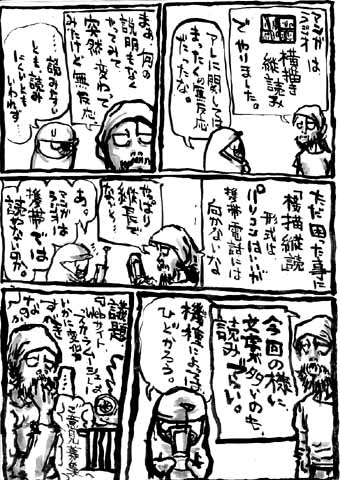 横描き
縦読み
でやりました。
アレに関しては
まったくの無反応
だったな。
まあ何の
説明もなく
突然変わって
みたけど無反応
読みやすい
とも読み
にくいとも
いわれず…
ただ困った事に
「横描縦読」
形式は
パソコンはいいが
携帯電話には
向かないな
やっぱり
縦長で
ないと…
あっ。
携帯では
読めないのか。
今回の様に
文章が多いのも、
読みづらい。
機種によっては
ひどかろう。
議題
『Webサイト
いかに
ご意見募集